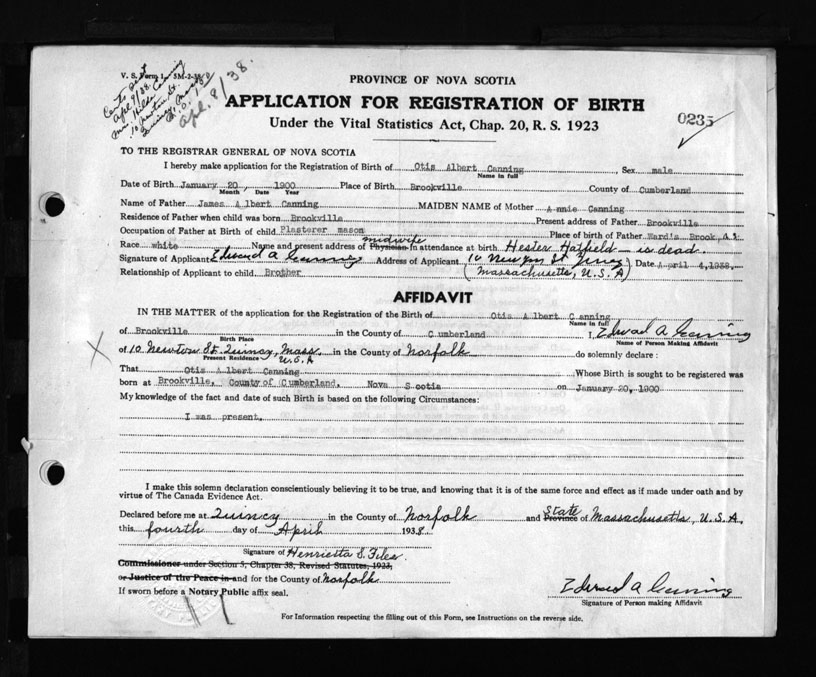 V. S. Form 1. 3M-2-38
Cert. sent
Apl 9/38
Mrs. Hilda Canning
10 Newton St.
Quincy, Mass
Apl. 8/38.
PROVINCE OF NOVA SCOTIA
APPLICATION FOR REGISTRATION OF BIRTH
Under the Vital Statistics Act, Chap. 20, R. S. 1923
0235
TO THE REGISTRAR GENERAL OF NOVA SCOTIA
I hereby make application for the Registration of Birth of Otis Albert Canning, Sex male
Name in full
Date of Birth January 20, 1900 Place of Birth Brookville County of Cumberland
Month Date Year
Name of Father James Albert Canning MAIDEN NAME of Mother Annie Canning
Residence of Father when child was born Brookville Present address of Father Brookville
Occupation of Father at Birth of child Plasterer mason Place of Birth of Father Ward's Brook, N.S.
midwife
Race white Name and present address of Physician in attendance at birth Hester Hatfield - is dead.
Signature of Applicant Edward A Canning Address of Applicant 10 Newton St Quincy Date April 4, 1938.
Relationship of Applicant to child Brother (Massachusetts, U.S.A)
AFFIDAVIT
IN THE MATTER of the application for the Registration of the Birth of Otis Albert Canning
Name in full
of Brookville in the County of Cumberland I, Edward A Canning
Birth Place Name of Person Making Affidavit
of 10 Newton St. Quincy, Mass. in the County of Norfolk do solemnly declare :
Present Residence U.S.A
That Otis Albert Canning Whose Birth is sought to be registered was
born at Brookville, County of Cumberland, Nova Scotia on January 20, 1900
My knowledge of the fact and date of such Birth is based on the following Circumstances:
I was present.
I make this solemn declaration conscientiously believing it to be true, and knowing that it is of the same force and effect as if made under oath and by
virtue of The Canada Evidence Act.
State
Declared before me at Quincy in the County of Norfolk and Province of Massachusetts, U.S.A.
this fourth day of April 1938.
Signature of Henrietta S. Files
Commissioner under Section 5, Chapter 38, Revised Statutes, 1923,
or Justice of the Peace in and for the County of Norfolk
If sworn before a Notary Public affix seal.
Edward A Canning
Signature of Person making Affidavit
For Information respecting the filling out of this Form, see Instructions on the reverse side.